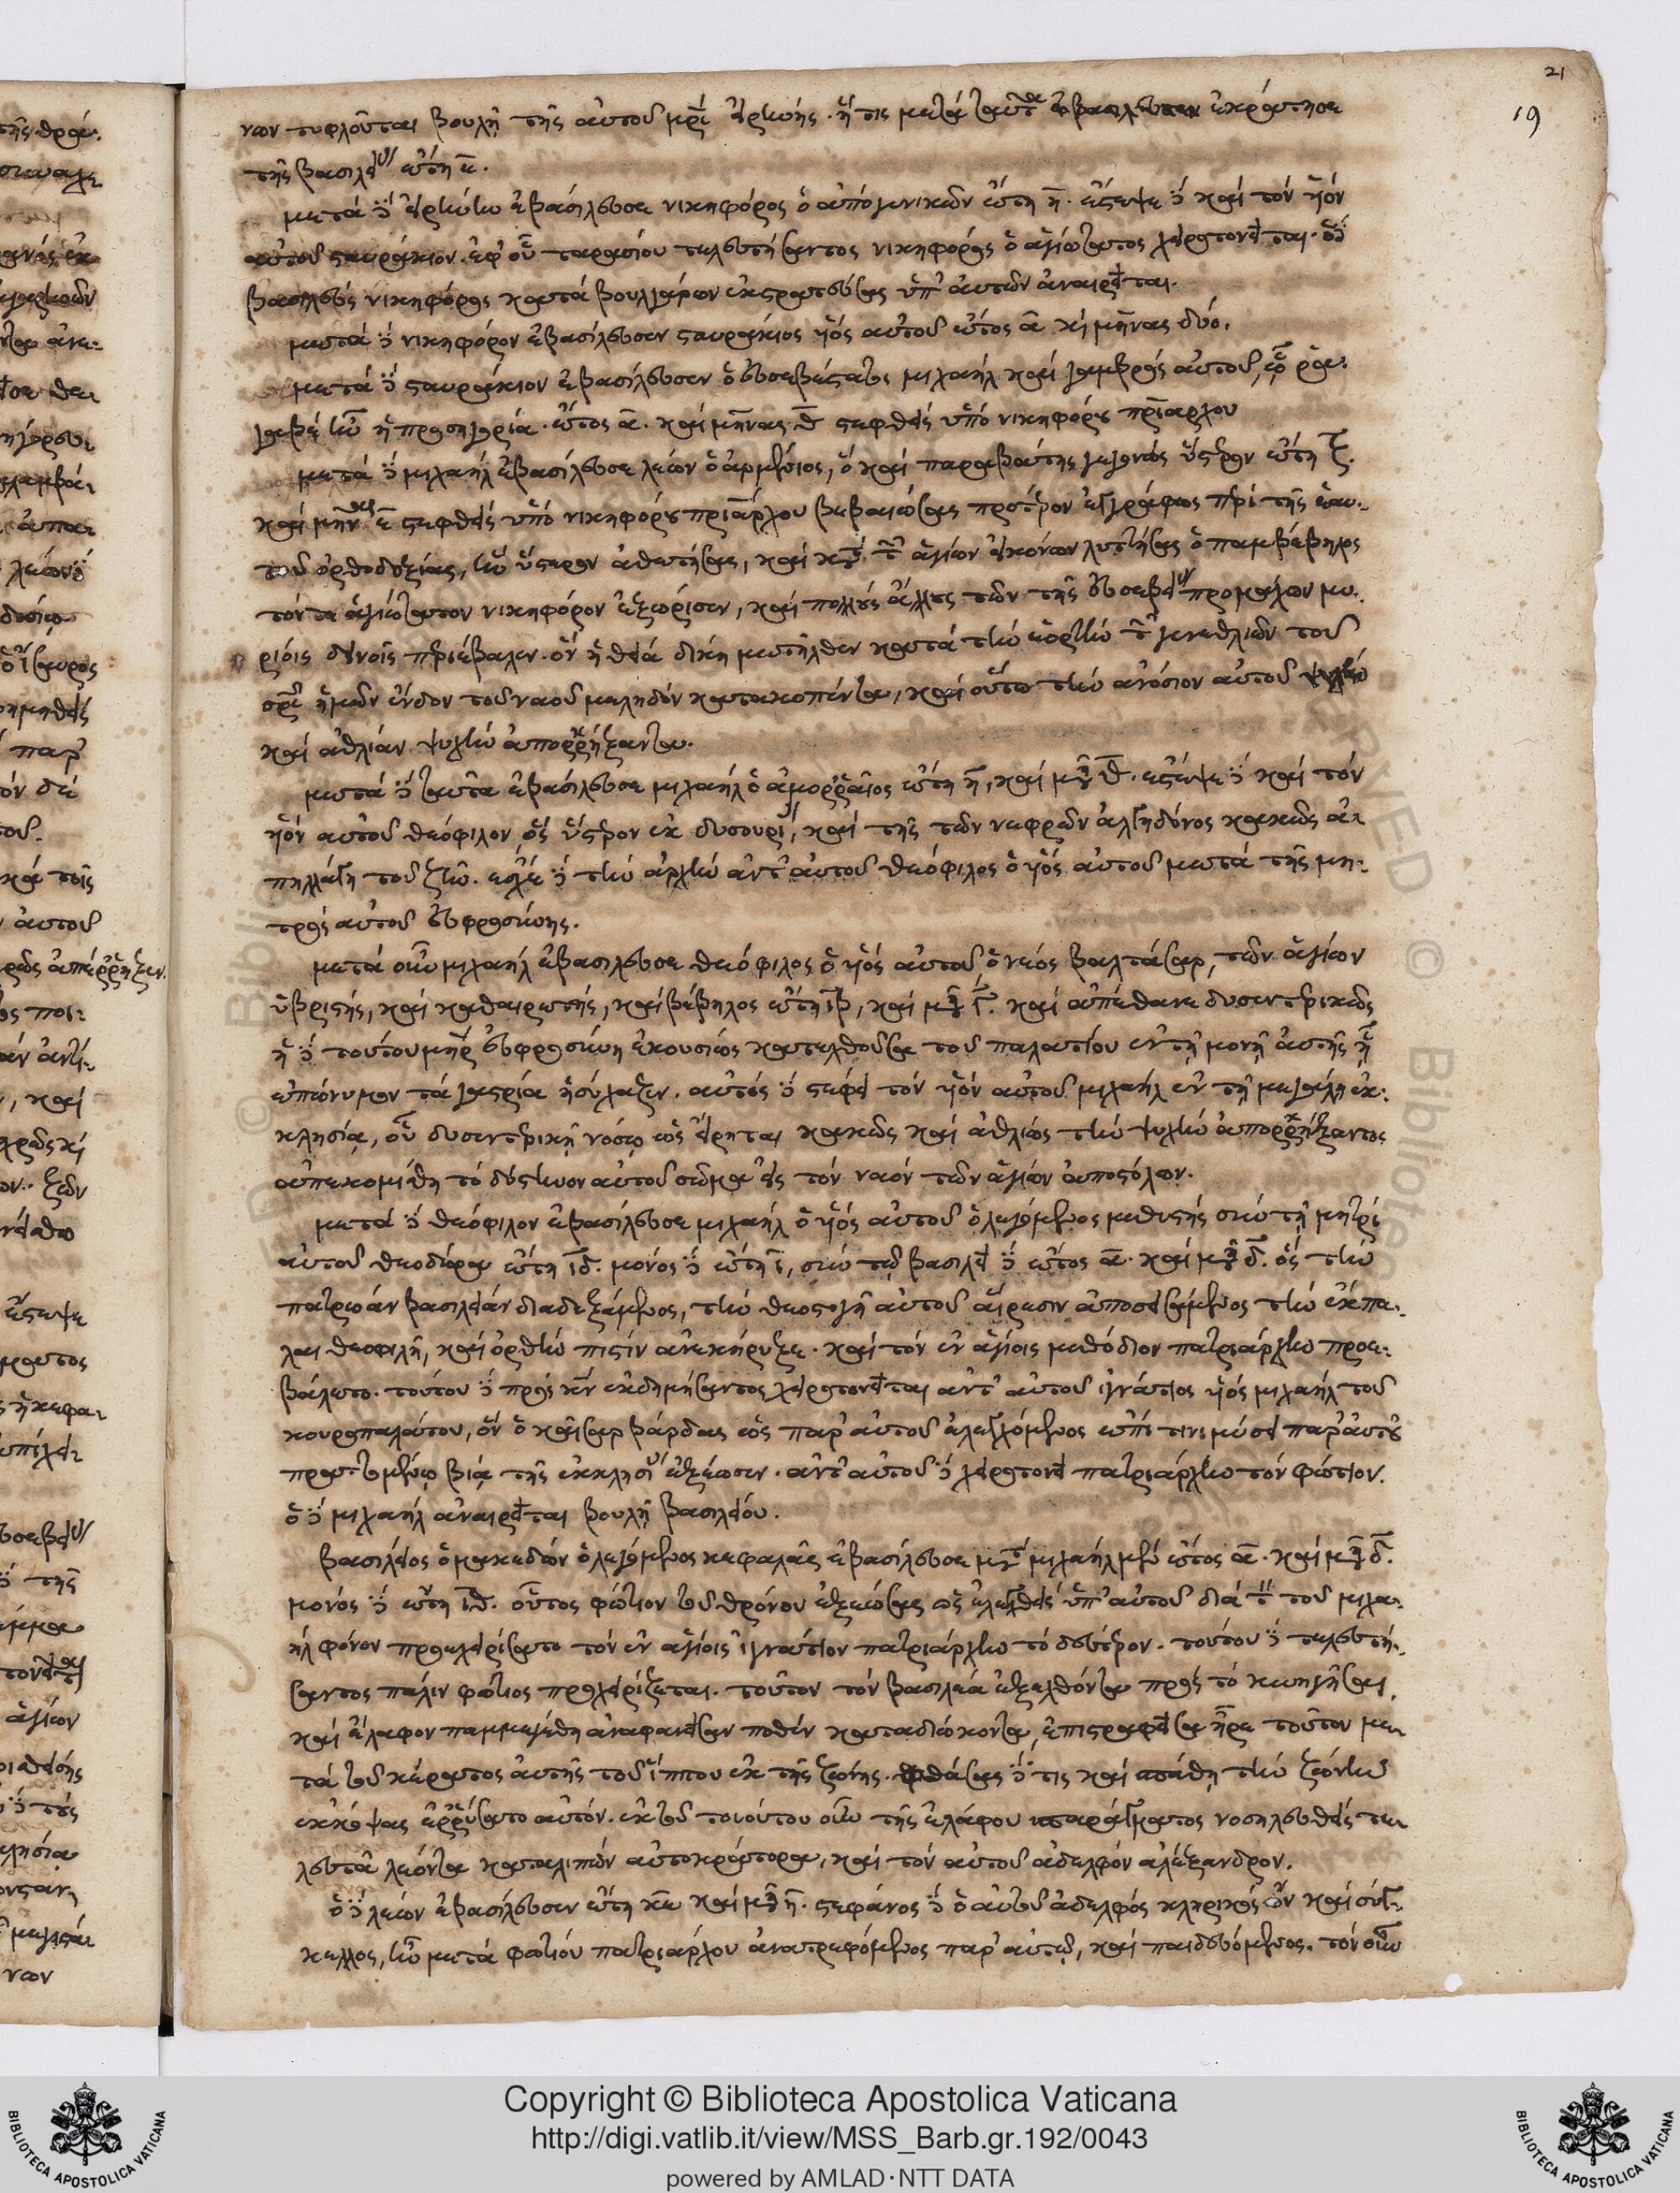 21
19
νων τυφλοῦται βουλῇ τῆς αὐτοῦ μρὶ εἰρήνης. ἥτις μετὰ ταῦτα ἐκράτησε
τῆς βασιλείας ἔτη ε.
μετὰ δὲ εἰρήνην ἐβασίλευσε νικηφόρος ὁ ἀπὸ γενικῶν ἔτη η. ἔστεψε δὲ καὶ τὸν υἱὸν
αὐτοῦ σταυράκιον. ἐφ' οὗ ταρασίου τελευτήσαντος νικηφόρος ὁ ἁγιώτατος χειροτονεῖται. ὁ δὲ
βασιλεὺς νικηφόρος κατὰ βουλγάρων ἐκστρατεύσας ὑπ' αὐτῶν ἀναιρεῖται.
μετὰ δὲ νικηφόρον ἐβασίλευσεν σταυράκιος υἱὸς αὐτοῦ ἔτος α κὶ μῆνας δύο.
μετὰ δὲ σταυράκιον ἐβασίλευσεν ὁ εὐσεβέστατος μιχαὴλ καὶ γαμβρὸς αὐτοῦ, ᾧ ῥα-
γαβὲ ἦν ἡ προσηγορία. ἔτος α. καὶ μῆνας θ στεφθεὶς ὑπὸ νικηφόρου πριάρχου
μετὰ δὲ μιχαὴλ ἐβασίλευσε λέων ὁ ἀρμένιος, ὁ καὶ παραβάτης γεγονὼς ὕστερον ἔτη ζ.
καὶ μῆνας ε στεφθεὶς ὑπὸ νικηφόρου πριάρχου βεβαιώσας πρότερον ἐγγράφως περὶ τῆς ἑαυ-
τοῦ ὀρθοδοξίας, ἣν ὕστερον ἀθετήσας, καὶ κατὰ τῶν ἁγίων εἰκόνων λυττήσας ὁ παμβέβηλος
τόν τε ἁγιώτατον νικηφόρον ἐξώρισεν, καὶ πολλοὺς ἄλλους τῶν τῆς εὐσεβείας προμάχων μυ-
ρίοις δεινοῖς περιέβαλεν. ὃν ἡ θεία δίκη μετῆλθεν κατὰ τὴν ἑορτὴν τῶν γενεθλίων τοῦ
σρς ἡμῶν ἔνδον τοῦ ναοῦ μεληδὸν κατακοπέντα, καὶ οὕτω τὴν ἀνόσιον αὐτοῦ
καὶ ἀθλίαν ψυχὴν ἀπορρήξαντα.
μετὰ δὲ ταῦτα ἐβασίλευσε μιχαὴλ ὁ ἀμορραῖος ἔτη η, καὶ μῆνας θ. ἔστεψε δὲ καὶ τὸν
υἱὸν αὐτοῦ θεόφιλον, ὃς ὕστερον ἐκ δυσουρίας, καὶ τῆς τῶν νεφρῶν ἀλγηδόνος κακῶς ἀ-
πηλλάγη τοῦ ζῆν. ἔσχε δὲ τὴν ἀρχὴν ἀντ' αὐτοῦ θεόφιλος ὁ υἱὸς αὐτοῦ μετὰ τῆς μη-
τρὸς αὐτοῦ εὐφροσύνης.
μετὰ οὖν μιχαὴλ ἐβασίλευσε θεόφιλος ὁ υἱὸς αὐτοῦ ὁ νέος βαλτάσαρ, τῶν ἁγίων
ὑβριστής, καὶ καθαιρετής, καὶ βέβηλος ἔτη ιβ, καὶ μῆνας γ. καὶ ἀπέθανε δυσεντερικῶς
ἡ δὲ τούτου μηρ εὐφροσύνη ἑκουσίως κατελθοῦσα τοῦ παλατίου ἐν τῇ μονῇ αὐτῆς ᾗ
ἐπώνυμον τὰ γαστρία ἡσύχαζεν. αὐτὸς δὲ στέφει τὸν υἱὸν αὐτοῦ μιχαὴλ ἐν τῇ μεγάλῃ ἐκ-
κλησίᾳ, οὗ δυσεντερικῇ νόσῳ ὡς εἴρηται κακῶς καὶ ἀθλίως τὴν ψυχὴν ἀπορρήξαντος
ἀπεκομίσθη τὸ δύστηνον αὐτοῦ σῶμα εἰς τὸν ναὸν τῶν ἁγίων ἀποστόλων.
μετὰ δὲ θεόφιλον ἐβασίλευσε μιχαὴλ ὁ υἱὸς αὐτοῦ ὁ λεγόμενος μεθυστὴς σὺν τῇ μητρὶ
αὐτοῦ θεοδώρᾳ ἔτη ιδ. μόνος δὲ ἔτη ι, σὺν τῷ βασιλεῖ δὲ ἔτος α. καὶ μῆνας δ. ὃς τὴν
πατρῴαν βασιλείαν διαδεξάμενος, τὴν θεοστυγῆ αὐτοῦ αἵρεσιν ἀποσεισάμενος τὴν ἔκπα-
λαι θεοφιλῆ, καὶ ὀρθὴν πίστιν ἀνεκήρυξε. καὶ τὸν ἐν ἁγίοις μεθόδιον πατριάρχην προε-
βάλετο. τούτου δὲ πρὸς κν ἐκδημήσαντος χειροτονεῖται ἀντ' αὐτοῦ ἰγνάτιος υἱὸς μιχαὴλ τοῦ
κουροπαλάτου, ὃν ὁ καῖσαρ βάρδας ὡς παρ' αὐτοῦ ἐλεγχόμενος ἐπί τινι μύσει παρ' αὐτοῦ
πραττομένῳ βίᾳ τῆς ἐκκλησίας ἐξέωσεν. ἀντ' αὐτοῦ δὲ χειροτονεῖ πατριάρχην τὸν φώτιον.
ὁ δὲ μιχαὴλ ἀναιρεῖται βουλῇ βασιλείου.
βασίλειος ὁ μακεδὼν ὁ λεγόμενος κεφαλᾶς ἐβασίλευσε μετὰ μιχαὴλ μὲν ἔτος α. καὶ μῆνας δ.
μόνος δὲ ἔτη ιθ. οὗτος φώτιον τοῦ θρόνου ἐξεώσας ὡς ἐλεγχθεὶς ὑπ' αὐτοῦ διὰ τὸν τοῦ μιχα-
ὴλ φόνον προχειρίσατο τὸν ἐν ἁγίοις ἰγνάτιον πατριάρχην τὸ δεύτερον. τούτου δὲ τελευτή-
σαντος πάλιν φώτιος προχειρίζεται. τοῦτον τὸν βασιλέα ἐξελθόντα πρὸς τὸ κυνηγῆσαι,
καὶ ἔλαφον παμμεγέθη ἀναφανεῖσαν ποθὲν καταδιώκοντα, ἐπιστραφεῖσα ἦρε τοῦτον με-
τὰ τοῦ κέρατος αὐτῆς τοῦ ἵππου ἐκ τῆς ζώνης. φθάσας δέ τις καὶ σπάθῃ τὴν ζώνην
ἐκκόψας ἐρρύσατο αὐτόν. ἐκ τοῦ τοιούτου οὖν τῆς ἐλάφου σπαράγματος νοσηλευθεὶς τε-
λευτᾷ λέοντα καταλιπὼν αὐτοκράτορα, καὶ τὸν αὐτοῦ ἀδελφὸν ἀλέξανδρον.
ὁ δὲ λέων ἐβασίλευσεν ἔτη κε καὶ μῆνας η. στέφανος δὲ ὁ αὐτοῦ ἀδελφὸς κληρικὸς ὢν καὶ σύγ-
κελλος, ἦν μετὰ φωτίου πατριάρχου ἀνατρεφόμενος παρ' αὐτῷ, καὶ παιδευόμενος. τὸν οὖν
Copyright © Biblioteca Apostolica Vaticana
http://digi.vatlib.it/view/MSS_Barb.gr.192/0043
powered by AMLAD·NTT DATA
BIBLIOTECA APOSTOLICA VATICANA
BIBLIOTECA APOSTOLICA VATICANA